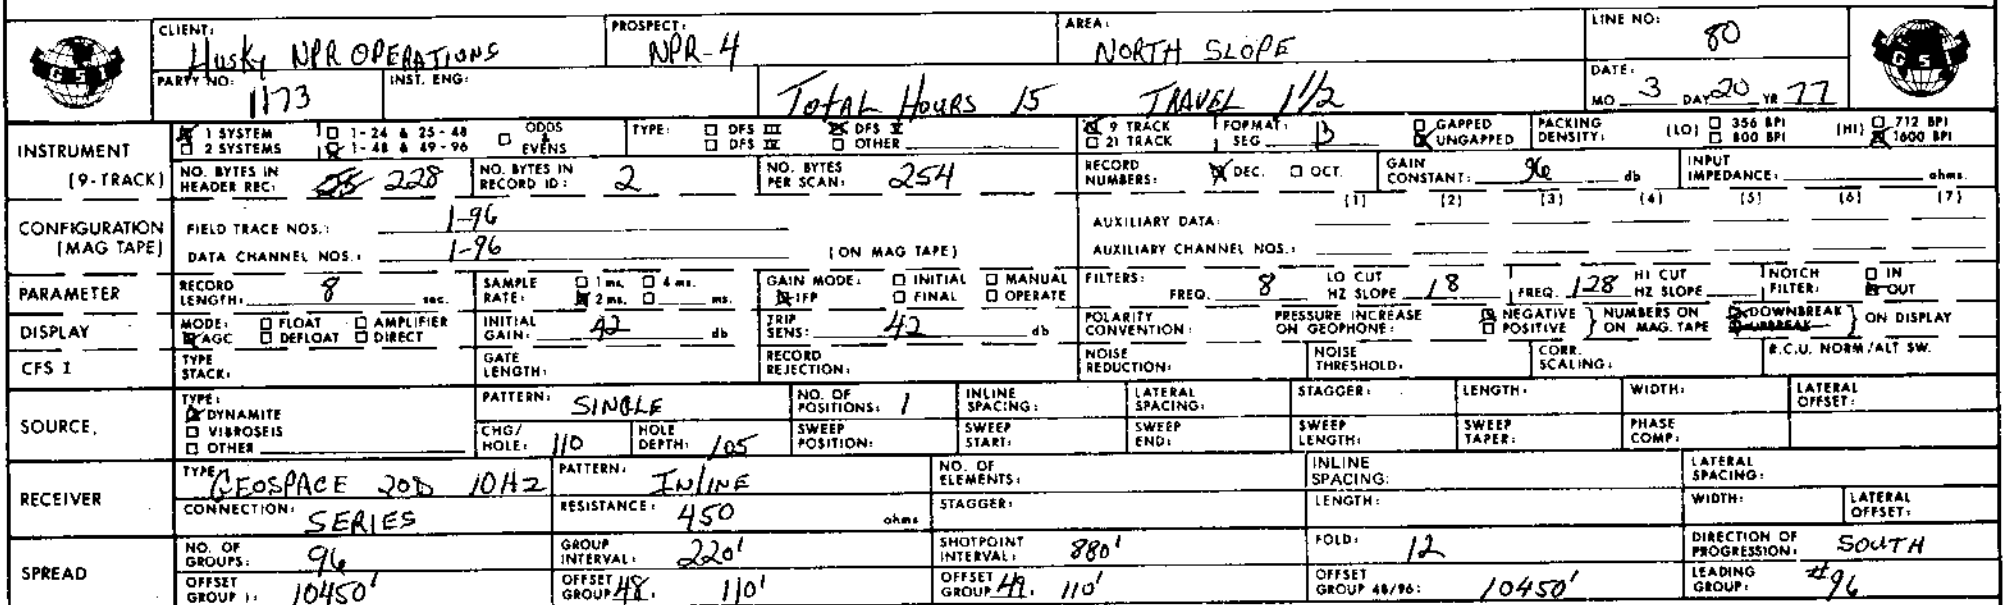 GSI CLIENT: Husky NPR OPERATIONS PROSPECT: NPR-4 AREA: NORTH SLOPE LINE NO: 80 GSI
PARTY NO: 1173 INST. ENG: TOTAL HOURS 15 TRAVEL 1 1/2 DATE: MO 3 DAY 20 YR 77
INSTRUMENT (9-TRACK) 1 SYSTEM 1-24 & 25-48 ODDS & EVENS TYPE: DFS III DFS V 9 TRACK FORMAT: B GAPPED PACKING DENSITY: (LO) 356 BPI (HI) 712 BPI
2 SYSTEMS 1-48 & 49-96 DFS IV OTHER 21 TRACK SEG UNGAPPED 800 BPI 1600 BPI
NO. BYTES IN HEADER REC: 228 NO. BYTES IN RECORD ID: 2 NO. BYTES PER SCAN: 254 RECORD NUMBERS: DEC. OCT. GAIN CONSTANT: 96 db INPUT IMPEDANCE: ohms.
CONFIGURATION (MAG TAPE) FIELD TRACE NOS.: 1-96 AUXILIARY DATA: (1) (2) (3) (4) (5) (6) (7)
DATA CHANNEL NOS.: 1-96 (ON MAG TAPE) AUXILIARY CHANNEL NOS.:
PARAMETER RECORD LENGTH: 8 sec. SAMPLE RATE: 1 ms. 4 ms. 2 ms. ms. GAIN MODE: INITIAL MANUAL IFP FINAL OPERATE FILTERS: FREQ. 8 LO CUT HZ SLOPE 18 FREQ. 128 HI CUT HZ SLOPE NOTCH FILTER: IN OUT
DISPLAY MODE: FLOAT AMPLIFIER AGC DEFLOAT DIRECT INITIAL GAIN: 42 db TRIP SENS: 42 db POLARITY CONVENTION: PRESSURE INCREASE ON GEOPHONE: NEGATIVE POSITIVE NUMBERS ON ON MAG. TAPE DOWNBREAK UPBREAK ON DISPLAY
CFS I TYPE STACK: GATE LENGTH: RECORD REJECTION: NOISE REDUCTION: NOISE THRESHOLD: CORR. SCALING: R.C.U. NORM/ALT SW.
SOURCE, TYPE: DYNAMITE VIBROSEIS OTHER PATTERN: SINGLE NO. OF POSITIONS: 1 INLINE SPACING: LATERAL SPACING: STAGGER: LENGTH: WIDTH: LATERAL OFFSET:
CHG/HOLE: 110 HOLE DEPTH: 105 SWEEP POSITION: SWEEP START: SWEEP END: SWEEP LENGTH: SWEEP TAPER: PHASE COMP:
RECEIVER TYPE: GEOSPACE 20D 10HZ PATTERN: INLINE NO. OF ELEMENTS: INLINE SPACING: LATERAL SPACING:
CONNECTION: SERIES RESISTANCE: 450 ohms STAGGER: LENGTH: WIDTH: LATERAL OFFSET:
SPREAD NO. OF GROUPS: 96 GROUP INTERVAL: 220' SHOTPOINT INTERVAL: 880' FOLD: 12 DIRECTION OF PROGRESSION: SOUTH
OFFSET GROUP 1: 10450' OFFSET GROUP 48: 110' OFFSET GROUP 49: 110' OFFSET GROUP 48/96: 10450' LEADING GROUP: #96